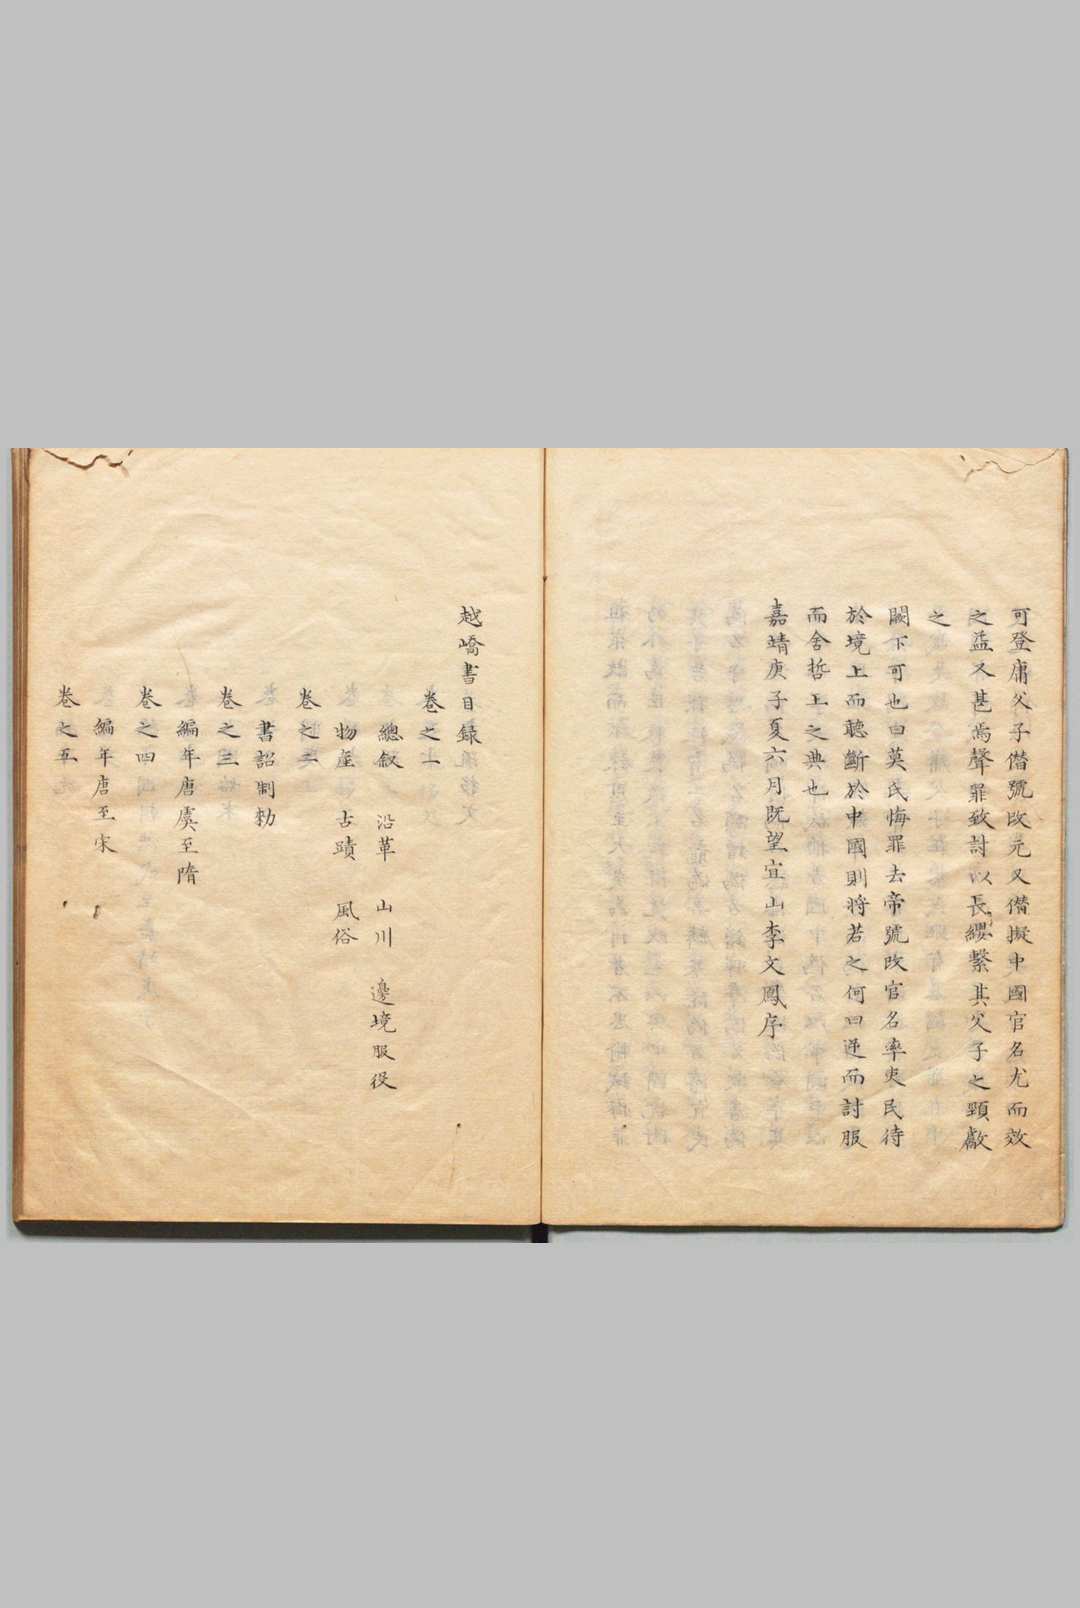 可登庸父子僭號改元又僭擬中國官名尤而效
之益又甚焉聲罪致討以長纓繫其父子之頸獻
之
闕下可也曰莫氏悔罪去帝號改官名率夷民待
於境上而聽斷於中國則將若之何曰逆而討服
而舍哲王之典也
嘉靖庚子夏六月既望宜山李文鳳序
越嶠書目錄
卷之一
總叙 沿革 山川 邊境服役
物產 古蹟 風俗
卷之二
書詔制勑
卷之三
編年唐虞至隋
卷之四
編年唐至宋
卷之五